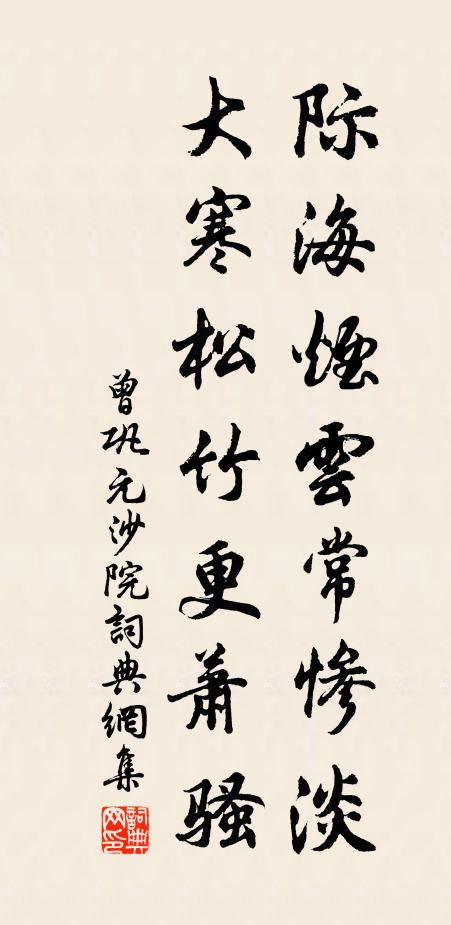 际海煙雲常惨淡
大寒松竹更蕭骚
曾巩元沙院詞典網集
詞典网印